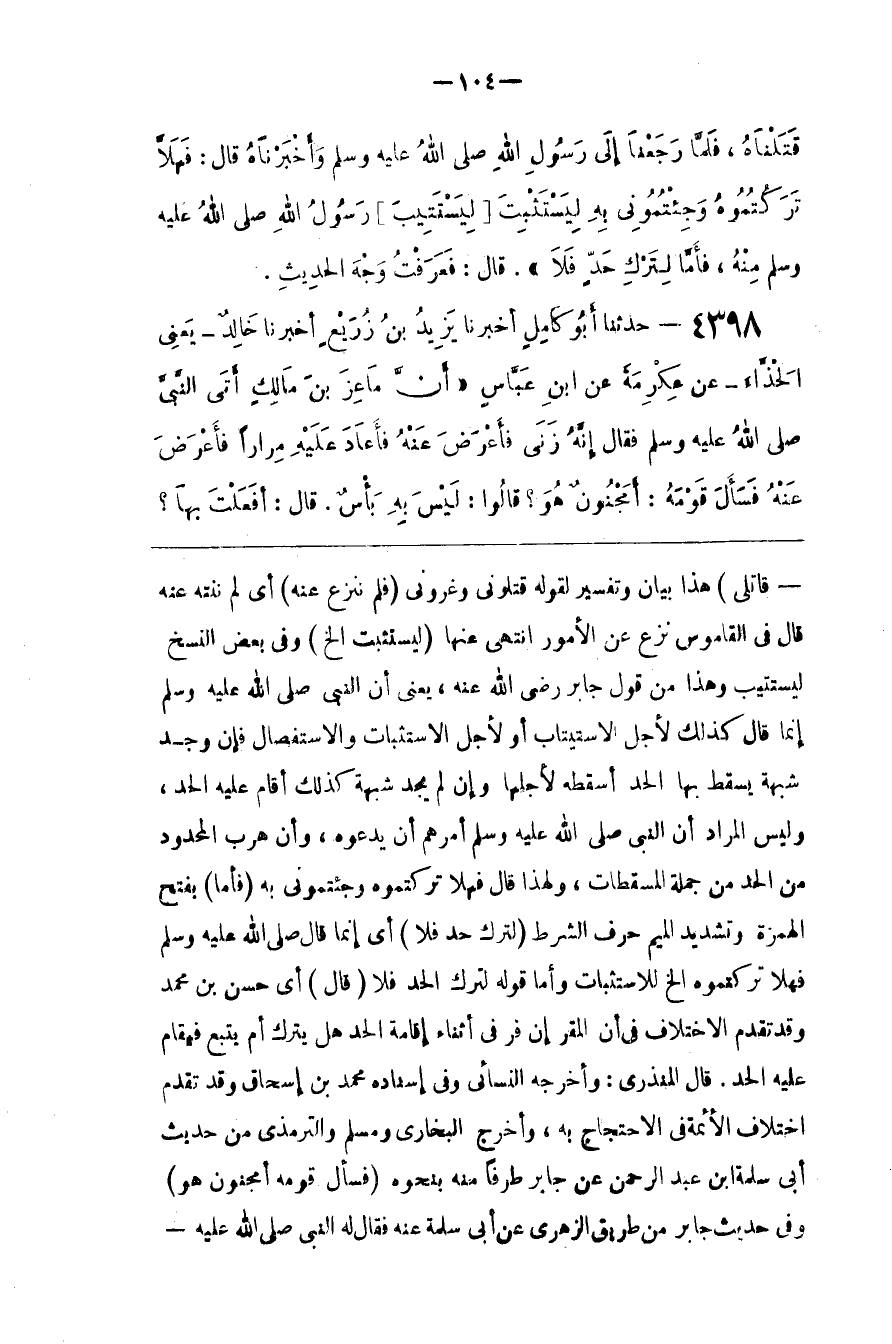 — ١٠٤ —
قَتَلْنَاهُ ، فَلَمَّا رَجَعْنَا إِلَى رَسُولِ اللهِ صلى اللهُ عليه وسلم وَأَخْبَرْنَاهُ قال : فَهَلاَّ
تَرَكْتُمُوهُ وَجِئْتُمُونِى بِهِ لِيَسْتَثْبِتَ [ لِيَسْتَتِيبَ ] رَسُولُ اللهِ صلى اللهُ عليه
وسلم مِنْهُ ، فأَمَّا لِتَرْكِ حَدٍّ فَلاَ » . قال : فَعَرَفْتُ وَجْهَ الحديثِ .
٤٣٩٨ — حدثنا أَبُو كَامِلٍ أخبرنا يَزِيدُ بنُ زُرَيْعٍ أخبرنا خَالِدٌ ـ يَعنِى
الْحَذَّاء ـ عن عِكْرِمَةَ عن ابنِ عَبَّاسٍ « أَنَّ مَاعِزَ بنَ مَالِكٍ أَتَى النَّبِىَّ
صلى اللهُ عليه وسلم فقال إِنَّهُ زَنَى فأَعْرَضَ عَنْهُ فأَعَادَ عَلَيْهِ مِراراً فأَعْرَضَ
عَنْهُ فَسَأَلَ قَوْمَهُ : أَمَجْنُونٌ هُوَ ؟ قالُوا : لَيْسَ بِهِ بَأْسٌ . قال : أفَعَلْتَ بِهاَ ؟
— قاتلى ) هذا بيان وتفسير لقوله قتلونى وغرونى (فلم ننزع عنه) أى لم ننته عنه
قال فى القاموس نزع عن الأمور انتهى عنها (ليستثبت الخ ) وفى بعض النسخ
ليستتيب وهذا من قول جابر رضى الله عنه ، يعنى أن النبى صلى الله عليه وسلم
إنما قال كذلك لأجل الاستيتاب أو لأجل الاستثبات والاستفصال فإن وجـد
شبهة يسقط بها الحد أسقطه لأجلها وإن لم يجد شبهة كذلك أقام عليه الحد ،
وليس المراد أن النبى صلى الله عليه وسلم أمرهم أن يدعوه ، وأن هرب المحدود
من الحد من جملة المسقطات ، ولهذا قال فهلا تركتموه وجئتمونى به (فأما) بفتح
الهمزة وتشديد الميم حرف الشرط (لترك حد فلا ) أى إنما قال صلى الله عليه وسلم
فهلا تركتموه الخ للاستثبات وأما قوله لترك الحد فلا ( قال ) أى حسن بن محمد
وقد تقدم الاختلاف فى أن المقر إن فر فى أثناء إقامة الحد هل يترك أم يتبع فيقام
عليه الحد . قال المنذرى : وأخرجه النسائى وفى إسناده محمد بن إسحاق وقد تقدم
اختلاف الأئمة فى الاحتجاج به ، وأخرج البخارى ومسلم والترمذى من حديث
أبى سلمة ابن عبد الرحمن عن جابر طرفاً منه بنحوه (فسأل قومه أمجنون هو)
وفى حديث جابر من طريق الزهرى عن أبى سلمة عنه فقال له النبى صلى الله عليه —